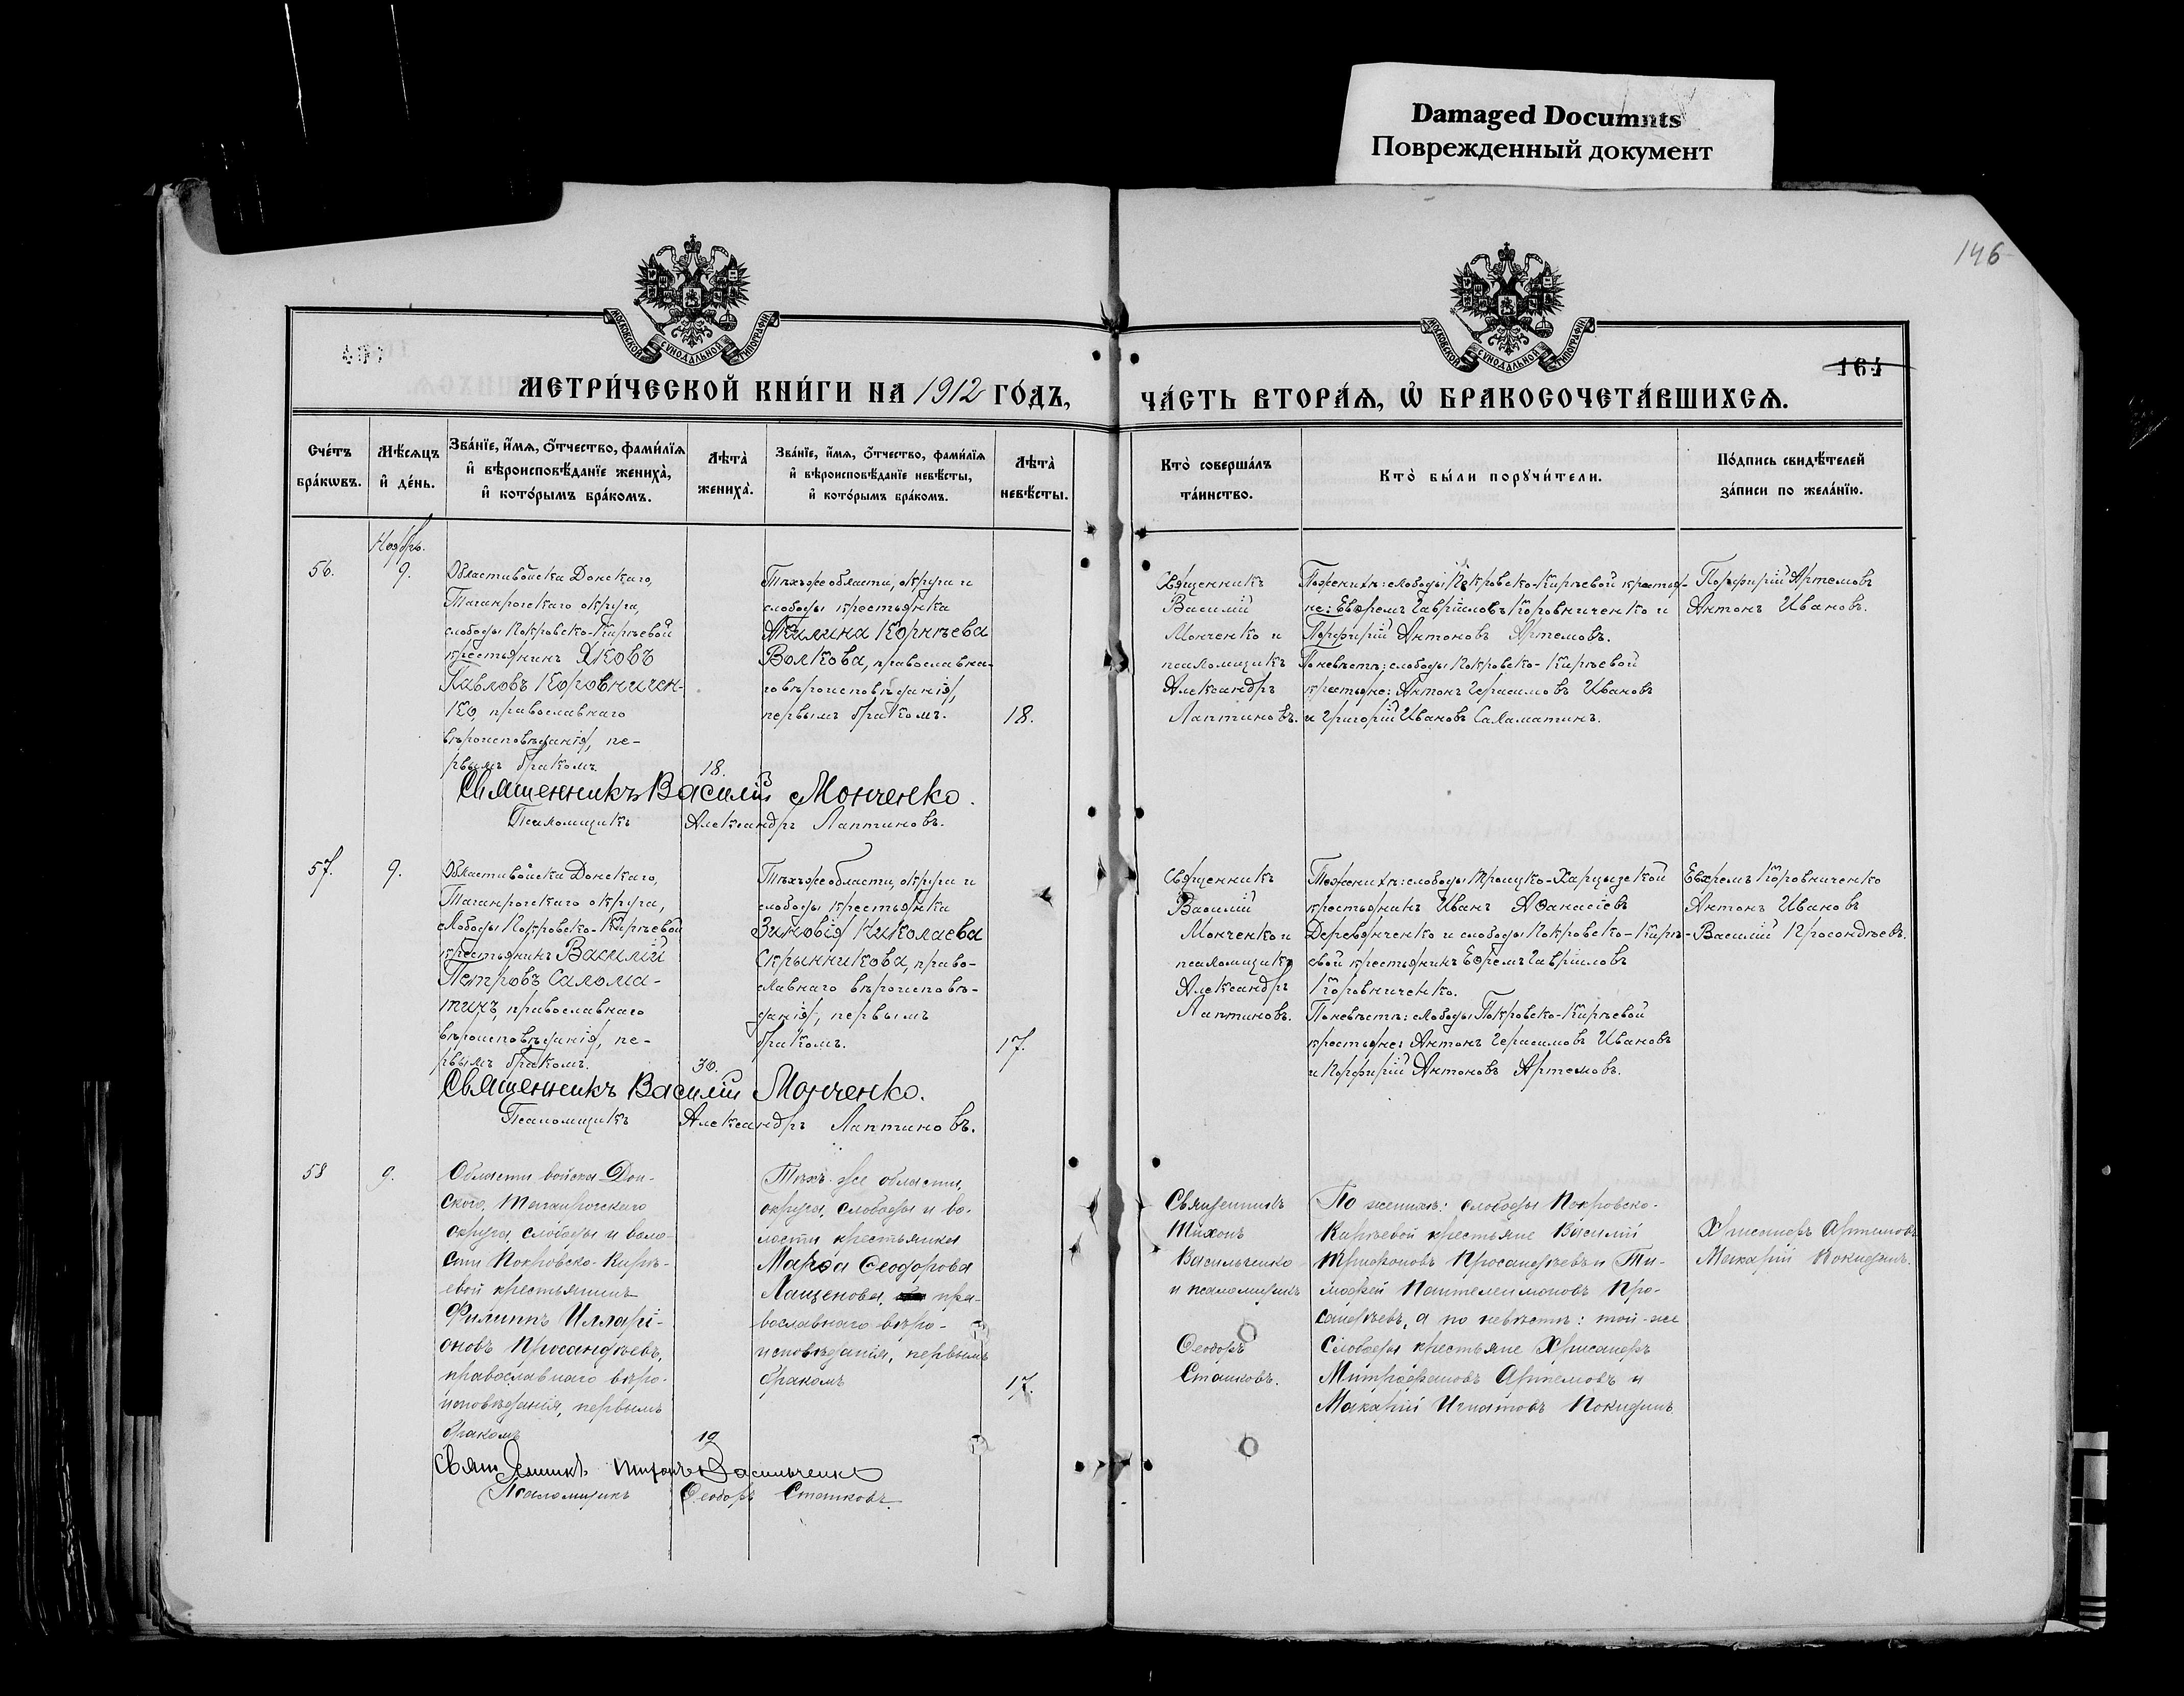 Damaged Documnts
Поврежденный документ
146
МОСКОВСКОЙ СѴНОДАЛЬНОЙ ТИПОГРАФІИ
МОСКОВСКОЙ СѴНОДАЛЬНОЙ ТИПОГРАФІИ
164
МЕТРИ́ЧЕСКОЙ КНИ́ГИ НА 1912 ГО́ДЪ,
ЧА́СТЬ ВТОРА́Ѧ, Ѽ БРАКОСОЧЕТА́ВШИХСѦ.
Сче́тъ
бра́кѡвъ.
Мѣ́сѧцъ
и҆ де́нь.
Зва́нїе, и҆́мѧ, ѻ҆́тчество, фами́лїѧ
и҆ вѣроисповѣ́данїе жениха̀,
и҆ кото́рымъ бра́комъ.
Лѣта̀
жениха̀.
Зва́нїе, и҆́мѧ, ѻ҆́тчество, фами́лїѧ
и҆ вѣроисповѣ́данїе невѣ́сты,
и҆ кото́рымъ бра́комъ.
Лѣта̀
невѣ́сты.
Кто̀ соверша́лъ
та́инство.
Кто̀ бы́ли порꙋчи́тели.
По́дпись свидѣ́телей
за́писи по жела́нїю.
Ноябрь.
56.
9.
Области войска Донскаго,
Таганрогскаго округа,
слободы Покровско-Кирѣевой
крестьянинъ Яковъ
Павловъ Коровничен-
ко, православнаго
вѣроисповѣданія, пе-
рвымъ бракомъ.
18.
Тѣхъ же области, округа и
слободы крестьянка
Акилина Корнѣева
Волкова, православна-
го вѣроисповѣданія,
первымъ бракомъ.
18.
Священникъ
Василій
Мончeнко и
псаломщикъ
Александръ
Лаптиновъ.
По женихѣ: слободы Покровско-Кирѣевой крестья-
не: Ефремъ Гавріиловъ Коровниченко и
Порфирій Антоновъ Артемовъ.
По невѣстѣ: слободы Покровско-Кирѣевой
крестьяне: Антонъ Герасимовъ Ивановъ
и Григорій Ивановъ Саламатинъ.
Порфирій Артемовъ
Антонъ Ивановъ.
Священникъ Василій Монченко.
Псаломщикъ Александръ Лаптиновъ.
57.
9.
Области войска Донскаго,
Таганрогскаго округа,
слободы Покровско-Кирѣевой
крестьянинъ Василій
Петровъ Салома-
тинъ, православнаго
вѣроисповѣданія, пе-
рвымъ бракомъ.
30.
Тѣхъ же области, округа и
слободы крестьянка
Зиновія Николаева
Скрынникова, право-
славнаго вѣроисповѣ-
данія, первымъ
бракомъ.
17.
Священникъ
Василій
Монченко и
псаломщикъ
Александръ
Лаптиновъ.
По женихѣ: слободы Троицко-Харцызской
крестьянинъ Иванъ Аѳанасіевъ
Деревянченко и слободы Покровско-Кирѣ-
евой крестьянинъ Ефремъ Гавріиловъ
Коровниченко.
По невѣстѣ: слободы Покровско-Кирѣевой
крестьяне: Антонъ Герасимовъ Ивановъ
и Порфирій Антоновъ Артемовъ.
Ефремъ Коровниченко
Антонъ Ивановъ
Василій Просондѣевъ.
Священникъ Василій Монченко.
Псаломщикъ Александръ Лаптиновъ.
58
9.
Области войска Дон-
скаго, Таганрогскаго
округа, слободы и воло-
сти Покровско-Кирѣ-
евой крестьянинъ
Филиппъ Илларі-
оновъ Просандѣевъ,
православнаго вѣро-
исповѣданія, первымъ
бракомъ
19
Тѣхъ-же области,
округа, слободы и во-
лости крестьянка
Марѳа Ѳеодорова
Лащенова, пра-
вославнаго вѣро-
исповѣданія, первымъ
бракомъ
17.
Священникъ
Тихонъ
Васильченко
и псаломщикъ
Ѳеодоръ
Сташковъ.
По женихѣ: слободы Покровско-
Кирѣевой крестьяне Василій
Трифоновъ Просандѣевъ и Ти-
мофей Пантелеимоновъ Про-
сандѣевъ, а по невѣстѣ: той-же
слободы крестьяне Хрисанфъ
Митрофановъ Артемовъ и
Макарій Игнатовъ Покидинъ.
Артемовъ
Макарій Покидинъ.
Священникъ Тихонъ Васильченко
Псаломщикъ Ѳеодоръ Сташковъ.